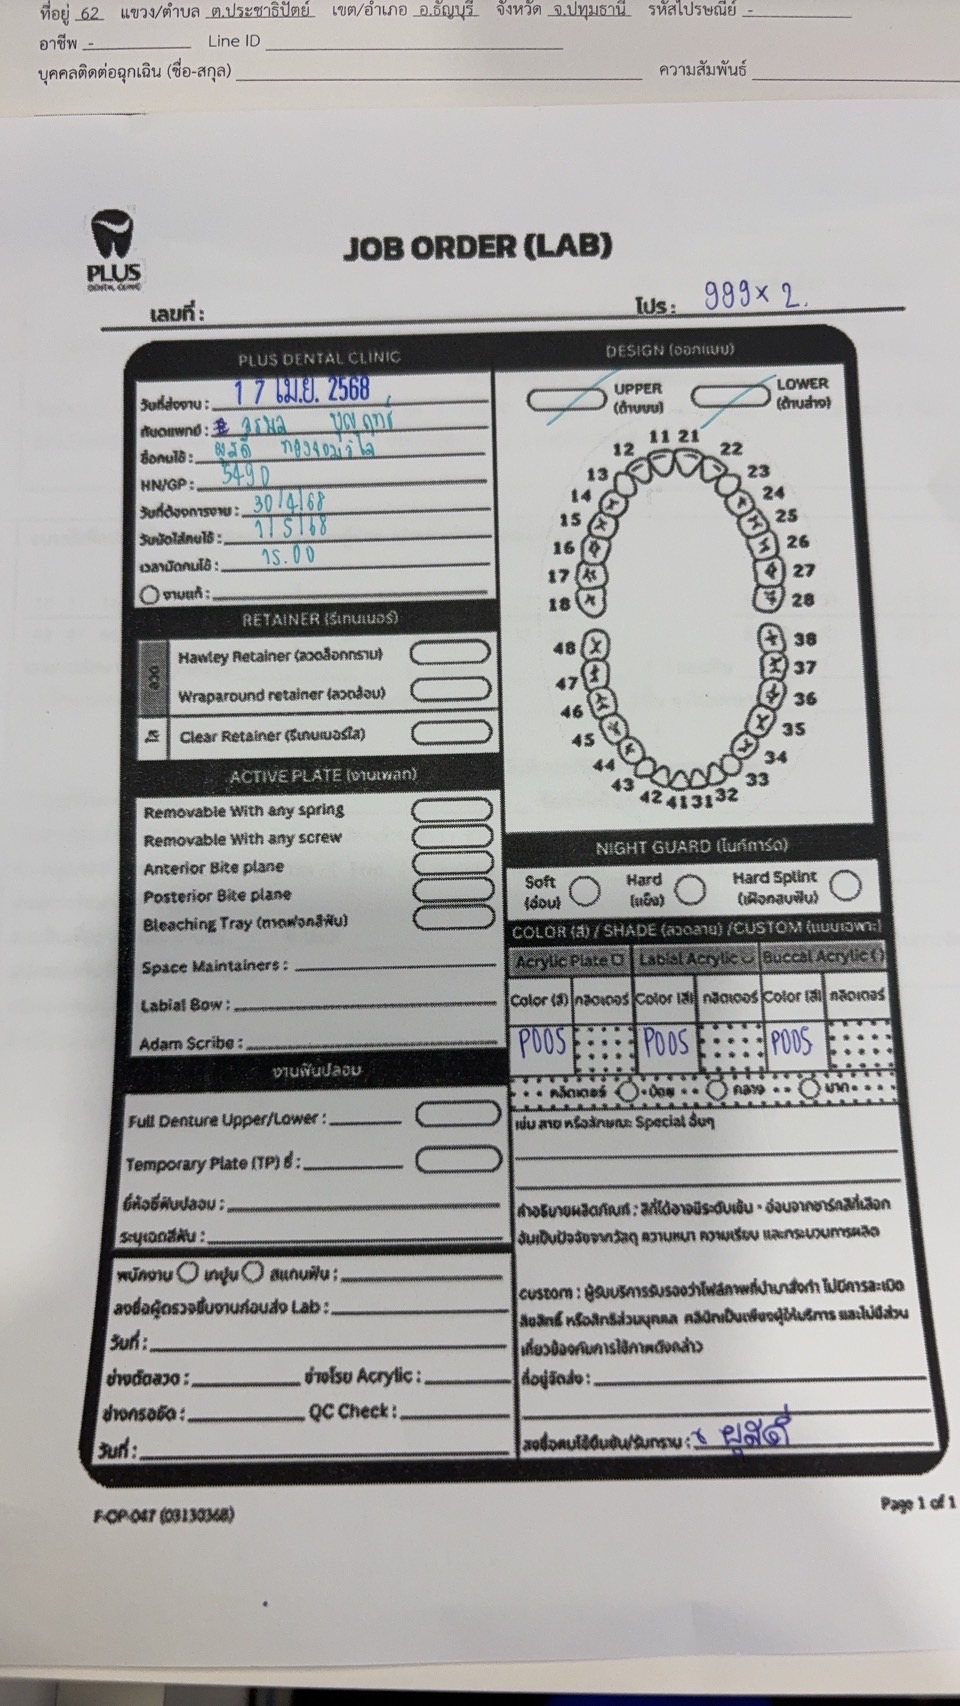 ที่อยู่ 62 แขวง/ตำบล ต.ประชาธิปัตย์ เขต/อำเภอ อ.ธัญบุรี จังหวัด จ.ปทุมธานี รหัสไปรษณีย์ -
อาชีพ - Line ID
บุคคลติดต่อฉุกเฉิน (ชื่อ-สกุล) ความสัมพันธ์
PLUS
DENTAL CLINIC
JOB ORDER (LAB)
เลขที่ : โปร : 999 x 2.
PLUS DENTAL CLINIC
วันที่ส่งงาน : 17 เม.ย. 2568
ทันตแพทย์ :
ชื่อคนไข้ : ผุสดี
HN/GP : 5490
วันที่ต้องการงาน : 30/4/68
วันนัดใส่คนไข้ : 1/5/68
เวลานัดคนไข้ : 15.00
งานแก้ :
RETAINER (รีเทนเนอร์)
ลวด
Hawley Retainer (ลวดล็อกกราม)
Wraparound retainer (ลวดล้อม)
ใส
Clear Retainer (รีเทนเนอร์ใส)
ACTIVE PLATE (งานเพลท)
Removable With any spring
Removable With any screw
Anterior Bite plane
Posterior Bite plane
Bleaching Tray (ถาดฟอกสีฟัน)
Space Maintainers :
Labial Bow :
Adam Scribe :
งานฟันปลอม
Full Denture Upper/Lower :
Temporary Plate (TP) ซี่ :
ยี่ห้อซี่ฟันปลอม :
ระบุเฉดสีฟัน :
พนักงาน เทปูน สแกนฟัน :
ลงชื่อผู้ตรวจชิ้นงานก่อนส่ง Lab :
วันที่ :
ช่างดัดลวด : ช่างโรย Acrylic :
ช่างกรอขัด : QC Check :
วันที่ :
DESIGN (ออกแบบ)
UPPER (ด้านบน) LOWER (ด้านล่าง)
11 21
12 22
13 23
14 24
15 25
16 26
17 27
18 28
48 38
47 37
46 36
45 35
44 34
43 33
42 41 31 32
NIGHT GUARD (ไนท์การ์ด)
Soft (อ่อน) Hard (แข็ง) Hard Splint (เฝือกสบฟัน)
COLOR (สี) / SHADE (ลวดลาย) /CUSTOM (แบบเฉพาะ)
Acrylic Plate Labial Acrylic Buccal Acrylic
Color (สี) กลิตเตอร์ Color (สี) กลิตเตอร์ Color (สี) กลิตเตอร์
P005 P005 P005
กลิตเตอร์ น้อย กลาง มาก
เช่น ลาย หรือลักษณะ Special อื่นๆ
คำอธิบายผลิตภัณฑ์ : สีที่ได้อาจมีระดับเข้ม - อ่อนจากชาร์ทสีที่เลือก
อันเป็นปัจจัยจากวัสดุ ความหนา ความเรียบ และกระบวนการผลิต
custom : ผู้รับบริการรับรองว่าไฟล์ภาพที่นำมาสั่งทำ ไม่มีการละเมิด
ลิขสิทธิ์ หรือสิทธิส่วนบุคคล คลินิกเป็นเพียงผู้ให้บริการ และไม่มีส่วน
เกี่ยวข้องกับการใช้ภาพดังกล่าว
ที่อยู่จัดส่ง :
ลงชื่อคนไข้ยืนยัน/รับทราบ : x ผุสดี
F-OP-047 (03130368) Page 1 of 1